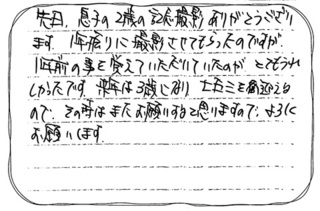 先日、息子の2歳の記念撮影ありがとうござい
ます。1年振りに撮影させてもらったのですが、
1年前の事を覚えていただいていたのが とてもうれ
しかったです。来年は3歳になり 七五三を迎える
ので、その時はまたお願いすると思いますので、よろしく
お願いします。